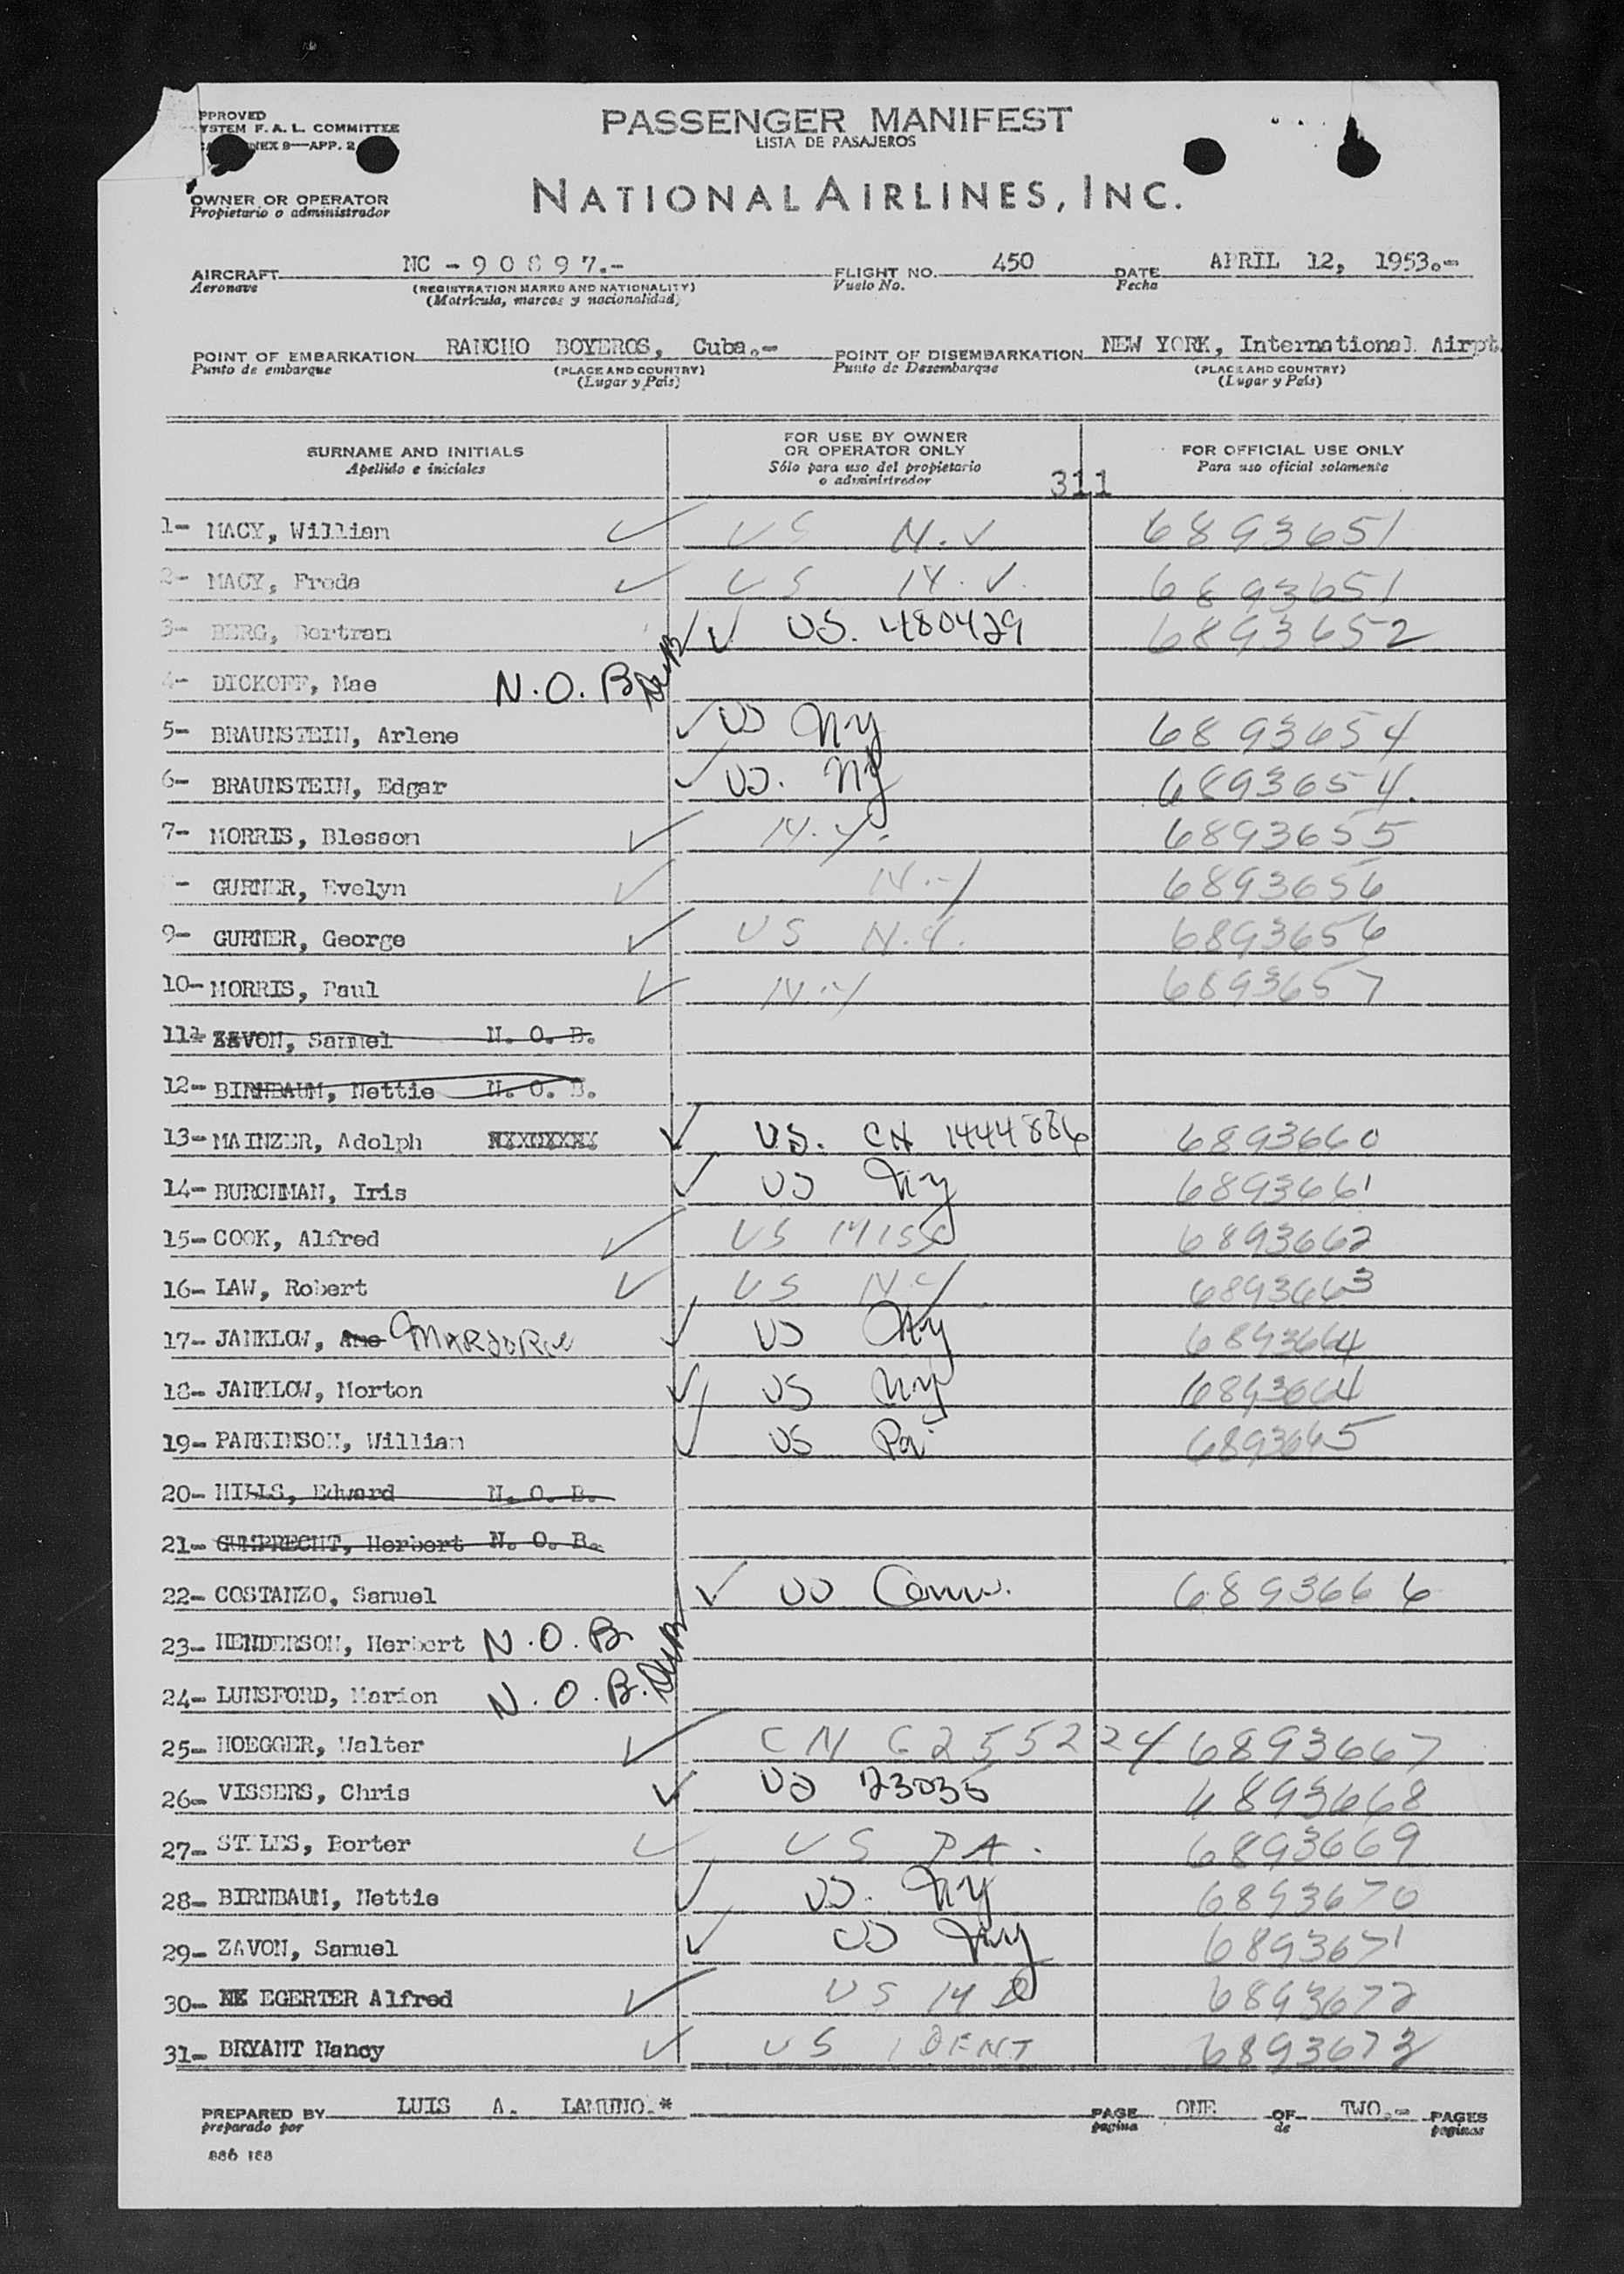 PPROVED
YSTEM F. A. L. COMMITTEE
NEX 9—APP. 2
PASSENGER MANIFEST
LISTA DE PASAJEROS
NATIONAL AIRLINES, INC.
OWNER OR OPERATOR
Propietario o administrador
AIRCRAFT NC - 9 0 8 9 7.- FLIGHT NO. 450 DATE APRIL 12, 1953.-
Aeronave (REGISTRATION MARKS AND NATIONALITY) Vuelo No. Fecha
(Matrícula, marcas y nacionalidad)
POINT OF EMBARKATION RANCHO BOYEROS, Cuba.- POINT OF DISEMBARKATION NEW YORK, International Airpt.
Punto de embarque (PLACE AND COUNTRY) Punto de Desembarque (PLACE AND COUNTRY)
(Lugar y País) (Lugar y País)
SURNAME AND INITIALS FOR USE BY OWNER OR OPERATOR ONLY FOR OFFICIAL USE ONLY
Apellido e iniciales Sólo para uso del propietario o administrador Para uso oficial solamente
311
1- MACY, William ✓ US N.Y 6893651
2- MACY, Freda ✓ US N.Y. 6893651
3- BERG, Bertram ✓ US. 480429 6893652
4- DICKOFF, Mae N.O.B
5- BRAUNSTEIN, Arlene ✓ US NY 6893654
6- BRAUNSTEIN, Edgar ✓ US. NY 6893654.
7- MORRIS, Blesson ✓ N.Y. 6893655
- GURNER, Evelyn ✓ N.Y 6893656
9- GURNER, George ✓ US N.Y. 6893656
10- MORRIS, Paul ✓ N.Y 6893657
11- ZAVON, Samuel N. O. B.
12- BIRNBAUM, Nettie N. O. B.
13- MAINZER, Adolph ✓ US. CN 1444886 6893660
14- BURCHMAN, Iris ✓ US NY 6893661
15- COOK, Alfred ✓ US MISS 6893662
16- LAW, Robert ✓ US NY 6893663
17- JANKLOW, MARJORIE ✓ US NY 6893664
18- JANKLOW, Morton ✓ US NY 6893664
19- PARKINSON, William ✓ US Pa. 6893665
20- HILLS, Edward N. O. B.
21- GUMPRECHT, Herbert N. O. B.
22- COSTANZO, Samuel ✓ US Conn. 6893666
23- HENDERSON, Herbert N.O.B.
24- LUNSFORD, Marion N.O.B.
25- HOEGGER, Walter ✓ CN 6255224 6893667
26- VISSERS, Chris ✓ US 6893668
27- Porter ✓ US PA. 6893669
28- BIRNBAUM, Nettie ✓ US. NY 6893670
29- ZAVON, Samuel ✓ US NY 6893671
30- EGERTER Alfred ✓ US MD 6893672
31- BRYANT Nancy ✓ US IDENT 6893673
PREPARED BY LUIS A. LAMUNO.* PAGE ONE OF TWO.- PAGES
preparado por pagina de paginas
886 188